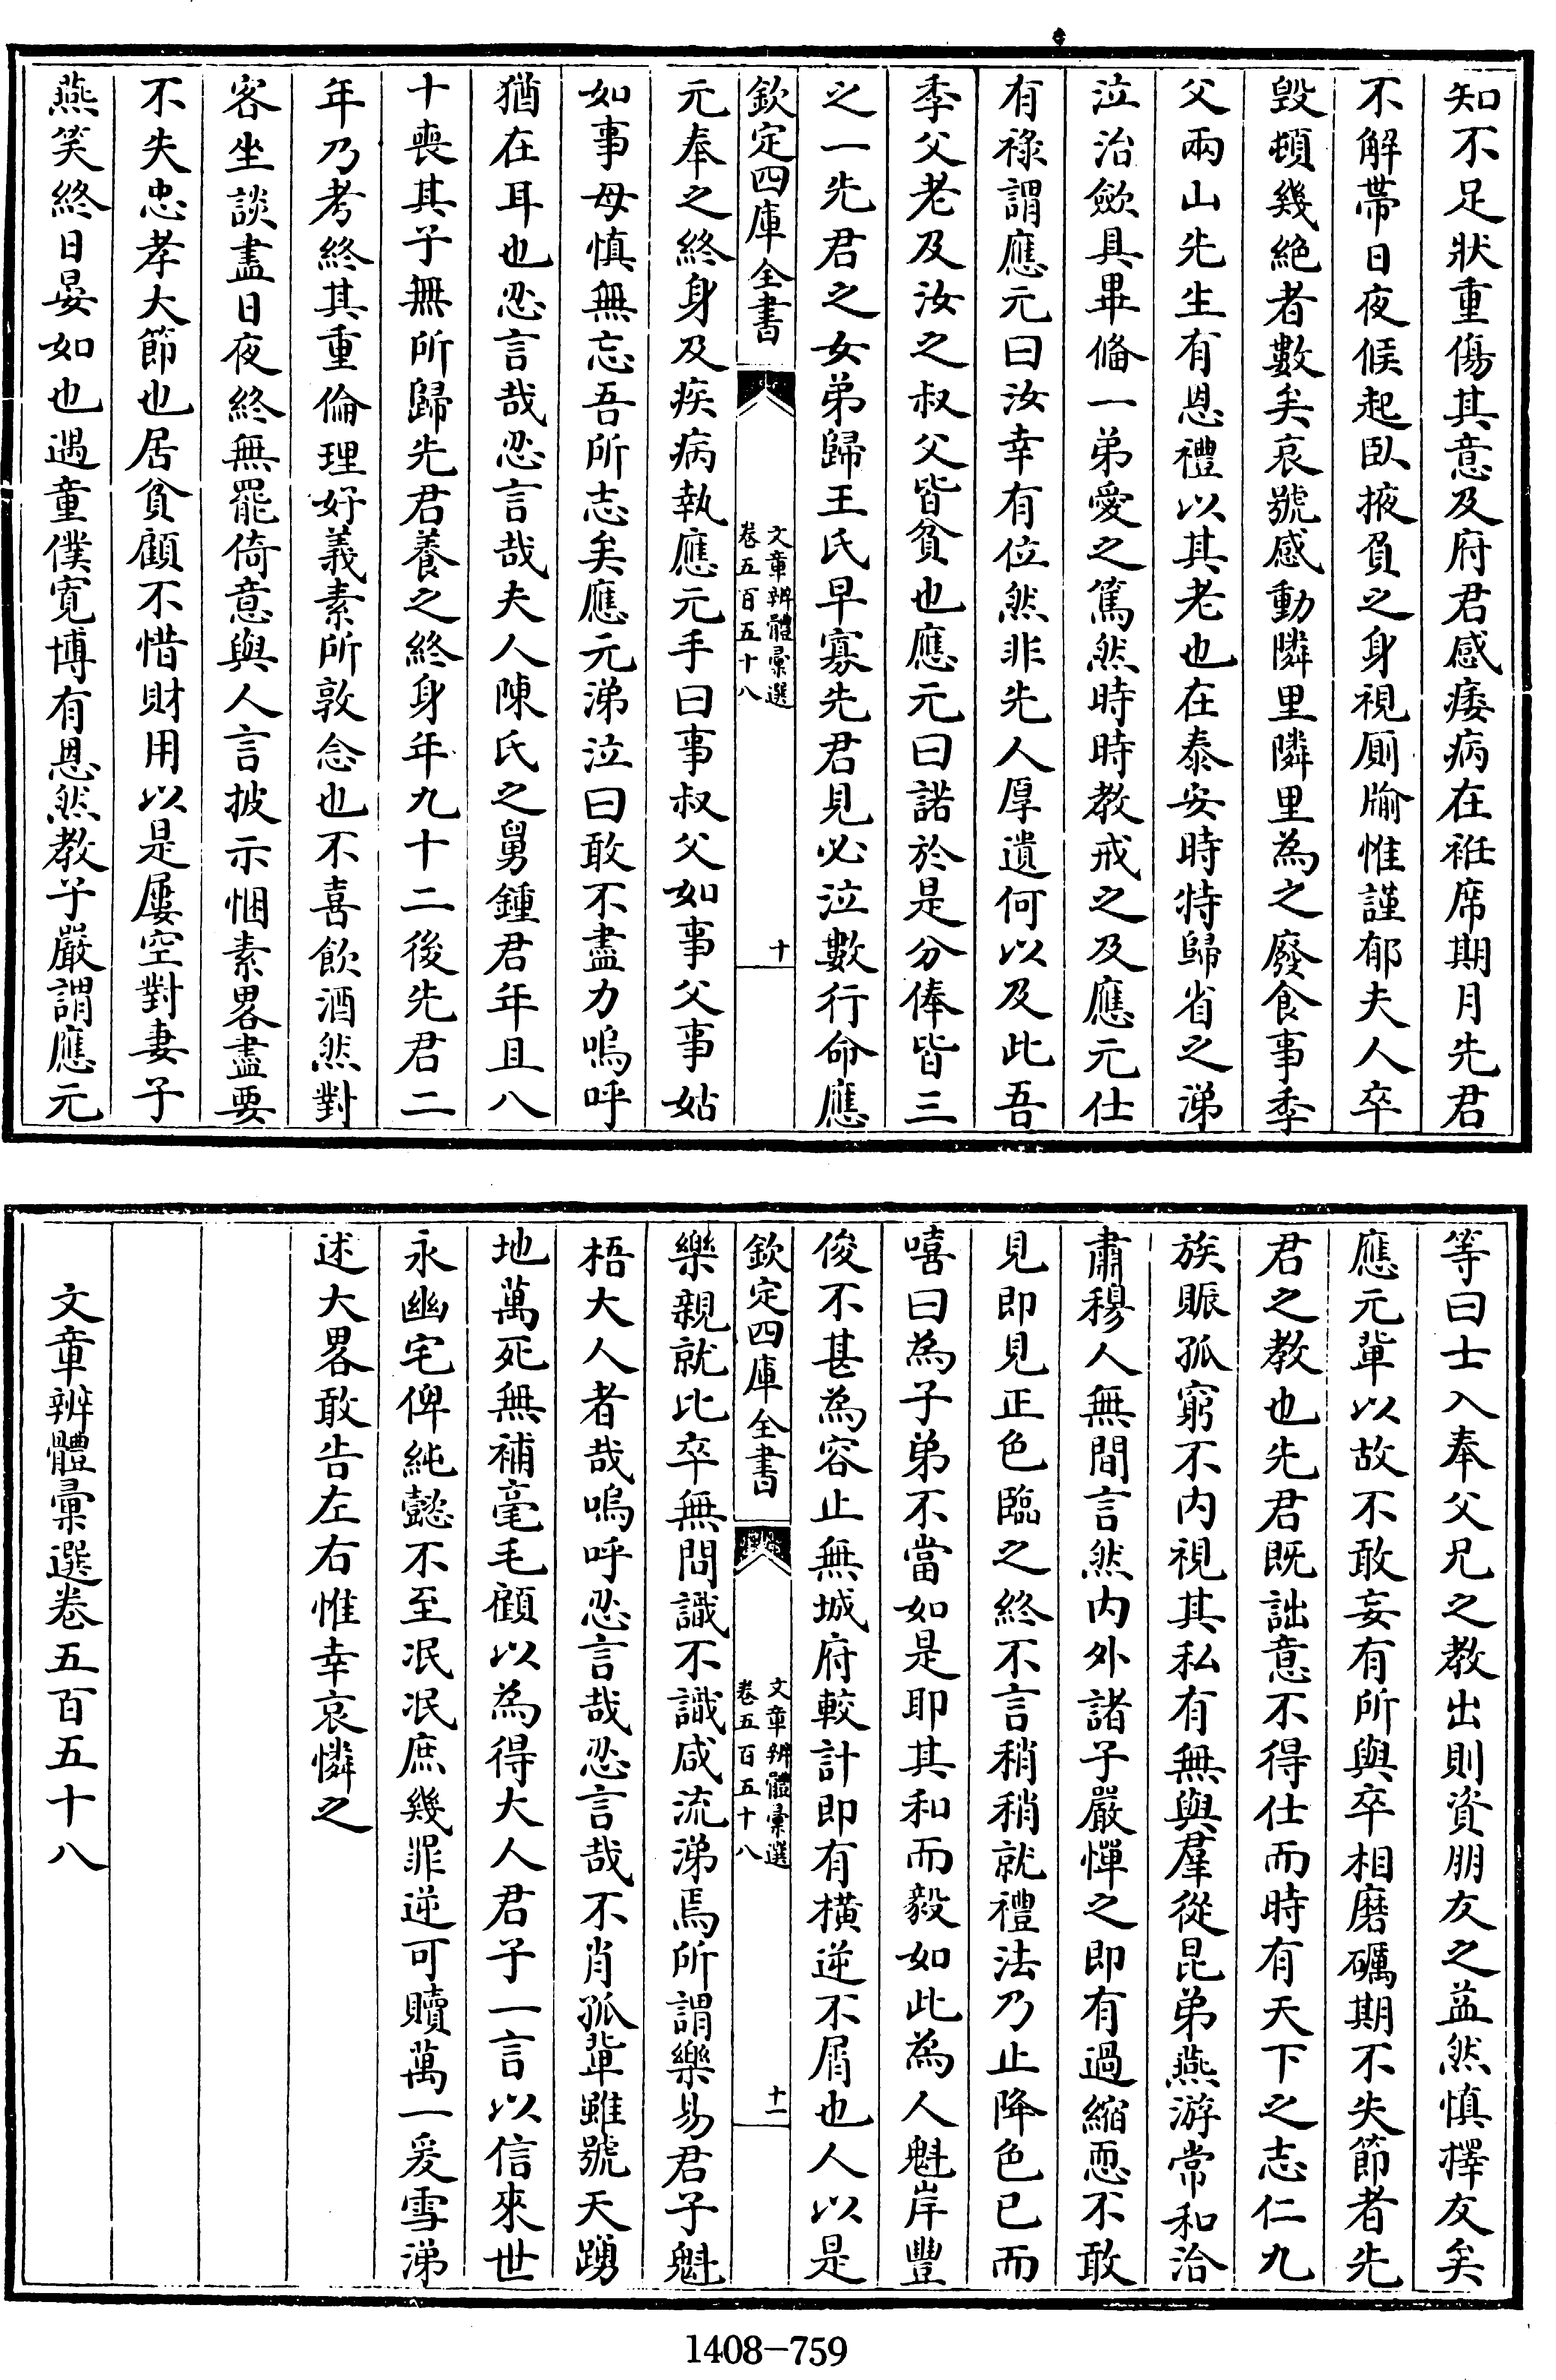 知不足狀重傷其意及府君感痿病在袵席期月先君
不解帶日夜候起臥掖負之身視厠牏惟謹郁夫人卒
毀頓幾絶者數矣哀號感動隣里隣里為之廢食事季
父兩山先生有恩禮以其老也在泰安時特歸省之涕
泣治斂具畢偹一弟愛之篤然時時教戒之及應元仕
有祿謂應元曰汝幸有位然非先人厚遺何以及此吾
季父老及汝之叔父皆貧也應元曰諾於是分俸皆三
之一先君之女弟歸王氏早寡先君見必泣數行命應
欽定四庫全書
文章辨體彙選
卷五百五十八
十
元奉之終身及疾病執應元手曰事叔父如事父事姑
如事母慎無忘吾所志矣應元涕泣曰敢不盡力嗚呼
猶在耳也忍言哉忍言哉夫人陳氏之舅鍾君年且八
十喪其子無所歸先君養之終身年九十二後先君二
年乃考終其重倫理好義素所敦念也不喜飲酒然對
客坐談盡日夜終無罷倚意與人言披示悃素畧盡要
不失忠孝大節也居貧顧不惜財用以是屢空對妻子
燕笑終日晏如也遇童僕寛博有恩然教子嚴謂應元
等曰士入奉父兄之教出則資朋友之益然慎擇友矣
應元輩以故不敢妄有所與卒相磨礪期不失節者先
君之教也先君既詘意不得仕而時有天下之志仁九
族賑孤窮不内視其私有無與羣從昆弟燕游常和洽
肅穆人無間言然内外諸子嚴憚之即有過縮恧不敢
見即見正色臨之終不言稍稍就禮法乃止降色已而
嘻曰為子弟不當如是耶其和而毅如此為人魁岸豐
俊不甚為容止無城府較計即有橫逆不屑也人以是
欽定四庫全書
文章辨體彙選
卷五百五十八
十一
樂親就比卒無問識不識咸流涕焉所謂樂易君子魁
梧大人者哉嗚呼忍言哉忍言哉不肖孤輩雖號天踴
地萬死無補毫毛顧以為得大人君子一言以信來世
永幽宅俾純懿不至冺冺庶幾罪逆可贖萬一爰雪涕
述大畧敢告左右惟幸哀憐之
文章辨體彙選卷五百五十八
1408-759